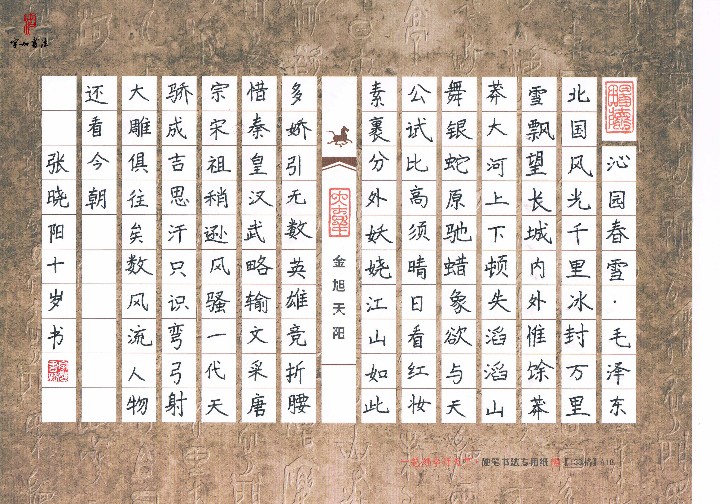 沁园春雪·毛泽东
北国风光千里冰封万里
雪飘望长城内外惟馀莽
莽大河上下顿失滔滔山
舞银蛇原驰蜡象欲与天
公试比高须晴日看红妆
素裹分外妖娆江山如此
金旭天阳
多娇引无数英雄竞折腰
惜秦皇汉武略输文采唐
宗宋祖稍逊风骚一代天
骄成吉思汗只识弯弓射
大雕俱往矣数风流人物
还看今朝
张晓阳十岁书
硬笔书法专用纸